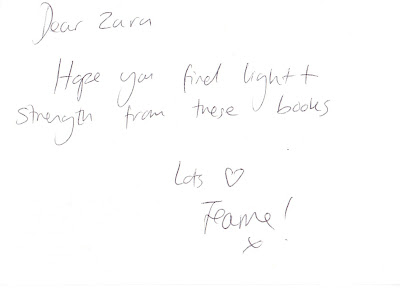 Dear Zara
Hope you find light +
strength from these books
Lots ♡
Jeanne!
x